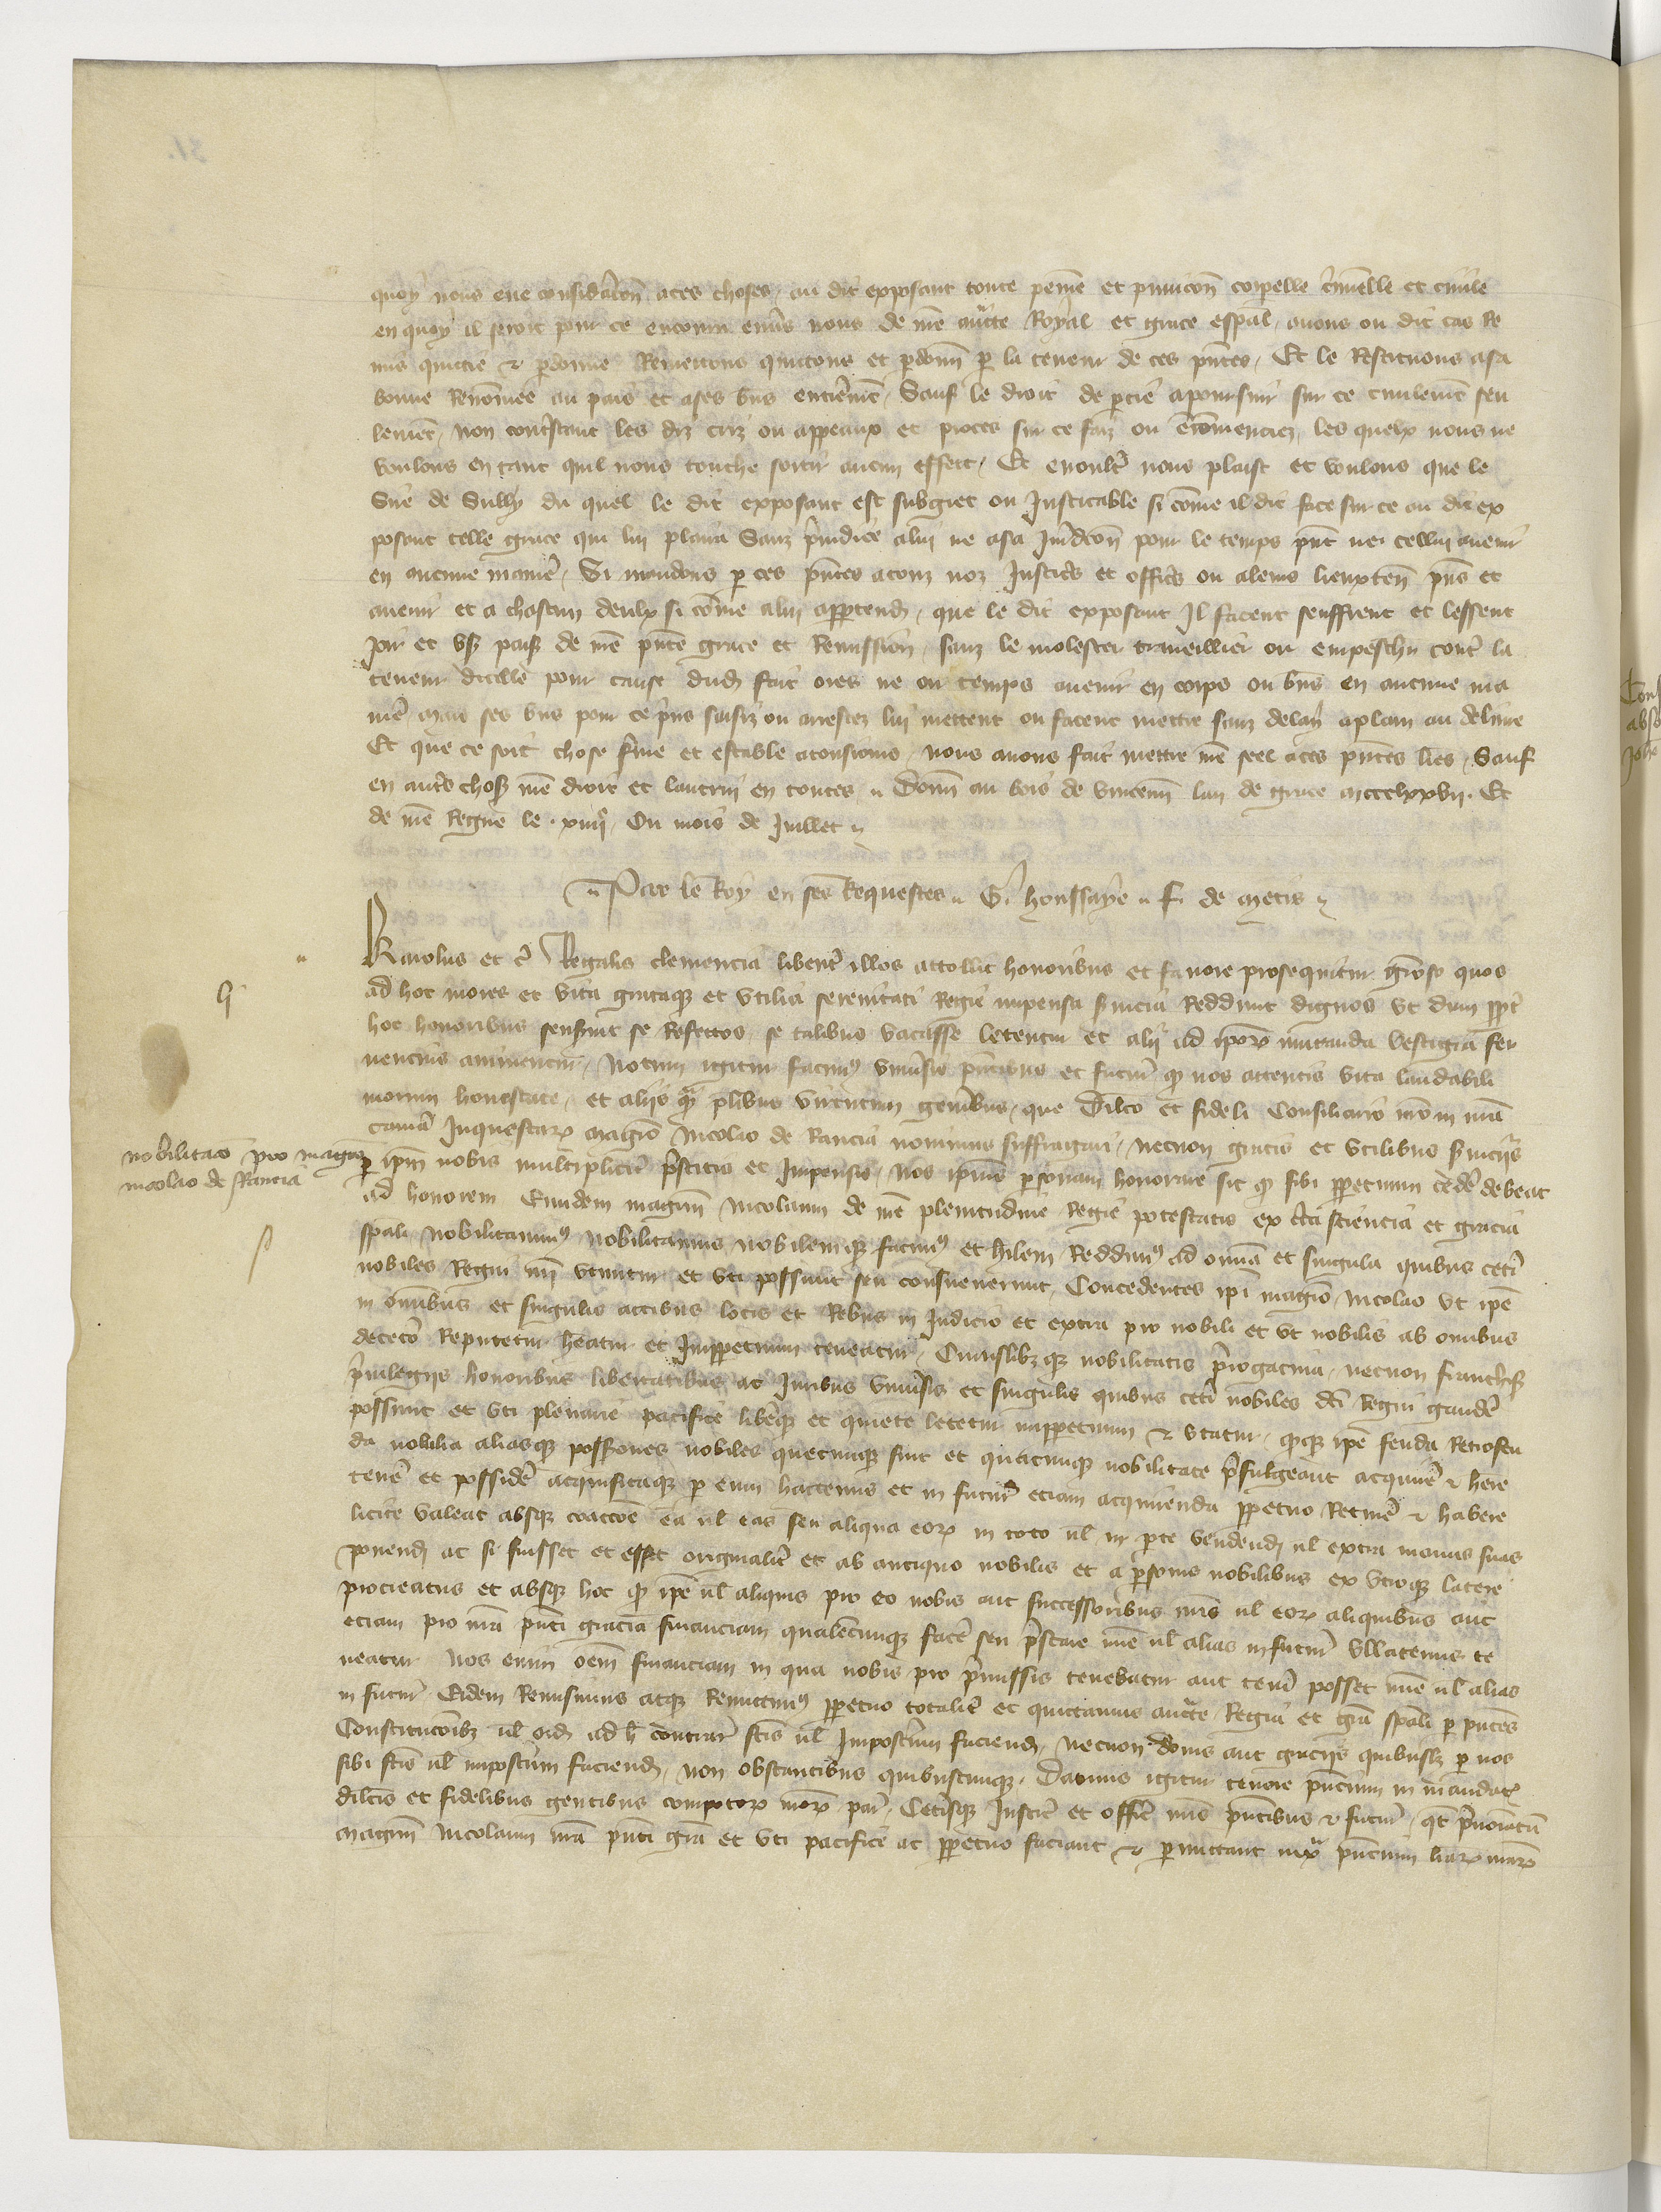 quoy nous eue consideracion a ces choses au dit exposant toute peine et punicon corpelle criminelle et civile
en quoy il seroit pour ce encouru envers nous de nre auctte Royal et grace espal, avons ou dit cas Re
mis quictie & pardonne Remettons quictons et pdonn p la teneur de ces pntes, Et le Restituons a sa
bonne Renommee au pais et a ses bns entieremt, Sauf le droit de ptie a poursuir sur ce civilement seu
lement, Non contrestant les diz criz ou appeaux et proces sur ce faiz ou encommenciez, les quelx nous ne
voulons en tant quil nous touche sortir aucun effect, Et en oultre nous plaist et voulons que le
Sire de Sully du quel le dit exposant est subgiet ou Justicable si come il dit face sur ce au dit ex
posant telle grace qui lui plaira Sanz preiudice a lui ne a sa Juridcon pour le temps pnt ne cellui avenir
en aucune maniere, Si mandons p ces pntes a touz noz Justiciers et officiers ou a leurs lieuxten pns et
avenir et a chascun deulx si comme a lui appartendra, que le dit exposant Il facent seuffrent et lessent
Joir et user paisiblement de nre pnte grace et Remission, sanz le molester traveillier ou empeschier contre la
teneur dicelle pour cause dudit fait ores ne ou temps avenir en corps ou bns en aucune ma
niere Mais ses bns pour ce prins saisiz ou arrestez lui mettent ou facent mettre sanz delay a plain au delivre
Et que ce soit chose ferme et estable a tousjours, nous avons fait mettre nre seel a ces pntes lres, Sauf
en autres choses nre droit et lautrui en toutes, Donn au bois de Vincenn lan de grace mccclxxvii. Et
de nre Regne le xiiiie, Ou mois de Juillet
Par le Roy en ses Requestes G. houssaye F. de Metis
Karolus et c Regalis clemencia libenter illos attollit honoribus et favore prosequitur gracioso quos
ad hoc mores et vita grataque et utilia serenitati Regie impensa servicia Reddunt dignos ut dum propter
hoc honoribus senserint se Refectos, se talibus vacasse letentur et alii ad ipsorum imitanda vestigia fer
vencius animentur, Notum igitur facimus universis presentibus et futuris quod nos attentis vita laudabili
morum honestate, et aliis quam pluribus virtutum generibus, que Dilco et fideli Consiliario nro in nra
camera Inquestarum Magistro Nicolao de Rancia novimus suffragari, necnon gratis et utilibus serviciis
p ipsum nobis multipliciter prestitis et impensis, Nos ipsius personam honorare sic quod sibi perpetuum cedere debeat
ad honorem Eundem magistrum Nicolaum de nre plenitudine Regie potestatis ex certa sciencia et gracia
spali Nobilitavimus Nobilitamus Nobilemque facimus et habilem Reddimus ad omnia et singula quibus ceteri
nobiles Regni nri utuntur et uti possunt seu consueverunt, Concedentes ipsi magistro Nicolao ut ipse
in omnibus et singulis actibus locis et Rebus in Judicio et extra pro nobili et ut nobilis ab omnibus
decetero Reputetur habeatur et Imperpetuum teneatur, Cuiuslibetque nobilitatis prerogativa, necnon franchesiis
privilegiis honoribus libertatibus ac Juribus universis et singulis quibus ceteri nobiles dicti Regni gaudere
possunt et uti plenarie pacifice libereque et quiete letetur imperpetuum & utatur, quodque ipse feuda Retrofeu
da nobilia aliasque possessiones nobiles quecunque sint et quacunque nobilitate prefulgeant acquirere & habere
tenere et possidere acquisitaque p eum hactenus et in futurum eciam acquirenda perpetuo Retinere & habere
licite valeat absque coactione ea vel eas seu aliqua eorum in toto vel in parte vendendi vel extra manus suas
ponendi ac si fuisset et esset originaliter et ab antiquo nobilis et a personis nobilibus ex utroque latere
procreatus et absque hoc quod ipse vel aliquis pro eo nobis aut successoribus nris vel eorum aliquibus aut
eciam pro nra pnti gracia financiam qualemcunque facere seu prestare nunc vel alias in futurum ullatenus te
neatur Nos enim omnem financiam in qua nobis pro premissis tenebatur aut teneri posset nunc vel alias
in futurum Eidem Remisimus atque Remittimus perpetuo totaliter et quictamus auctte Regia et gra spali p pntes
Constitutionibus vel ordinacionibus ad hoc contrariis factis vel Imposterum faciendis, necnon donis aut graciis quibuslibet p nos
sibi factis vel imposterum faciendis, non obstantibus quibuscunque, Damus igitur tenore presentium in mandatis
dilectis et fidelibus gentibus compotorum nrorum paris, Ceterisque Justiciariis et officiariis nris presentibus & futuris, quatenus prenominatum
Magistrum Nicolaum nra pnti gra et uti pacifice ac perpetuo faciant & permittant iuxta presentium litterarum nrarum
nobilitatio pro magistro
nicolao de Rancia